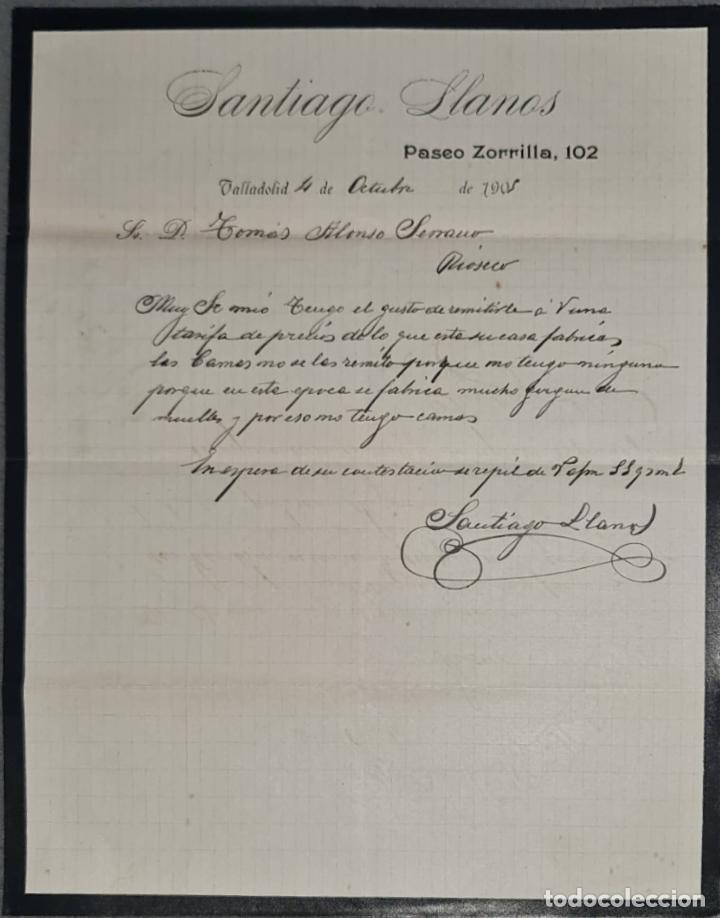 Santiago Llanos
Paseo Zorrilla, 102
Valladolid 4 de Octubre de 1905
Sr. D. Tomás Alonso Serrano
Rioseco
Muy Sr mio Tengo el gusto de remitirle á V una
tarifa de precios de lo que esta su casa fabrica
las Camas no se las remito porque no tengo ninguna
porque en esta epoca se fabrica mucho gergon de
muelles y por eso no tengo camas
En espera de su contestacion se repit de V afm SS q s m b
Santiago Llanos
todocoleccion